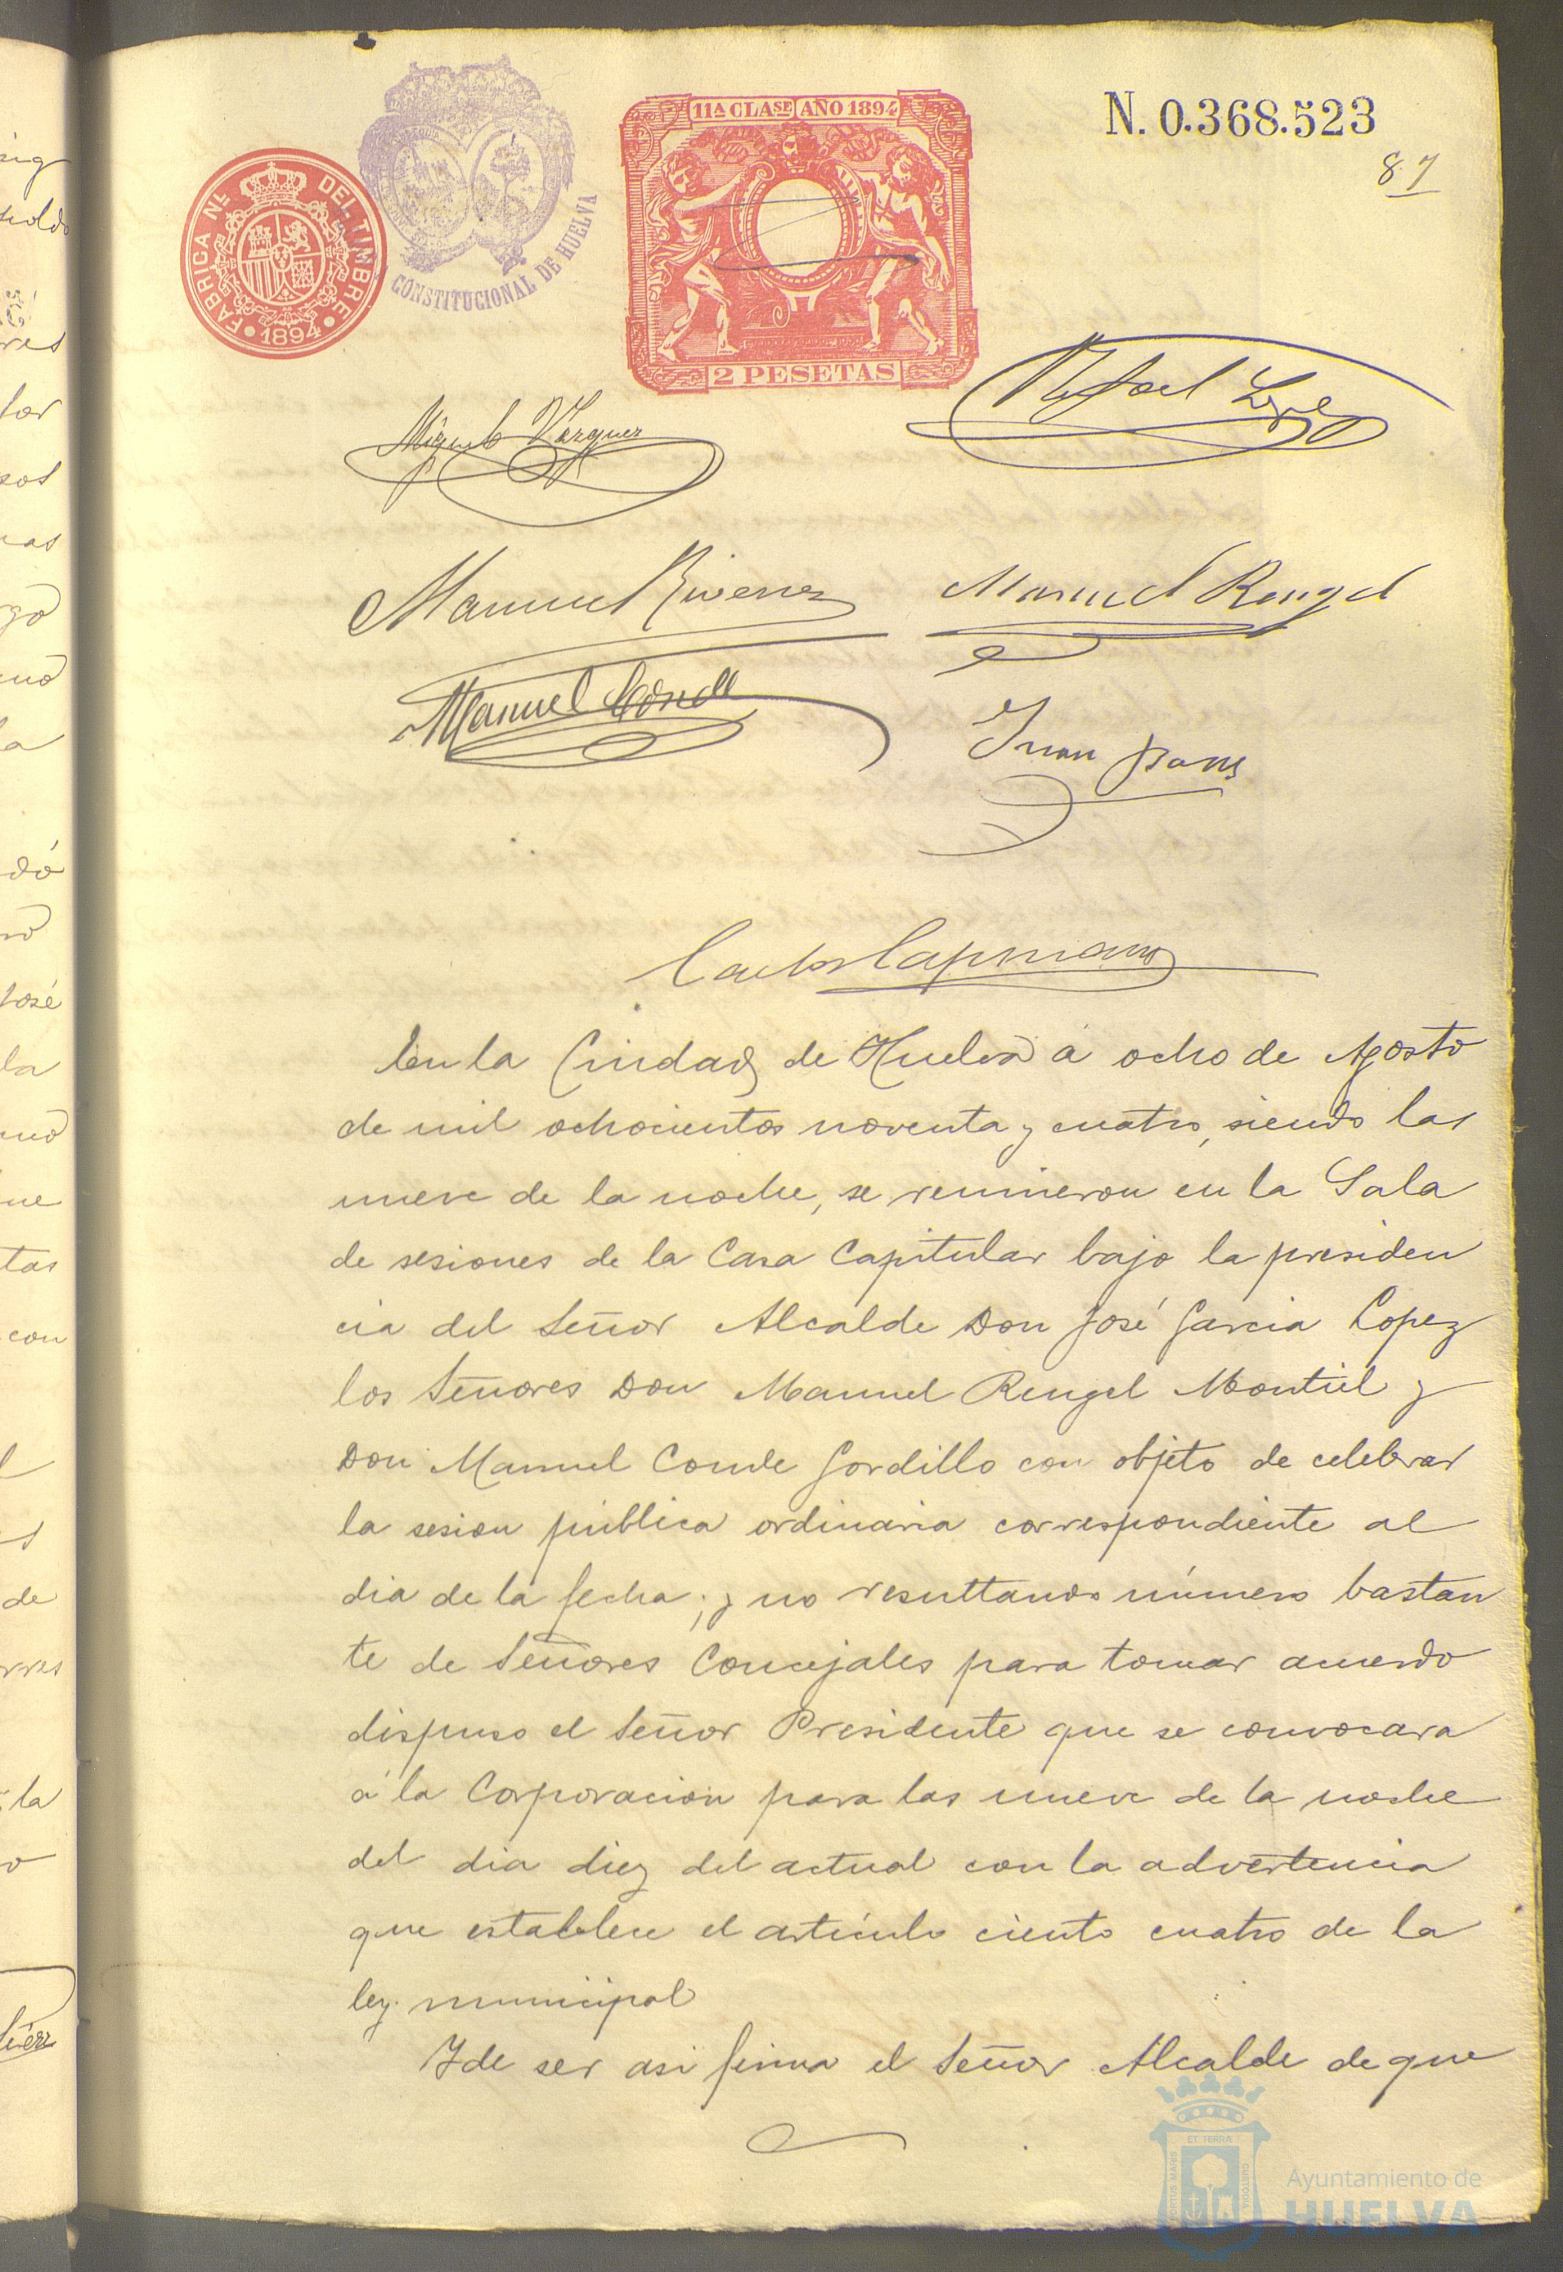 N. 0.368.523
87
11ª CLASE AÑO 1894
FABRICA Nˡ DEL TIMBRE
1894
CONSTITUCIONAL DE HUELVA
2 PESETAS
Rafael Lopez
Miguel Vazquez
Manuel Rivera
Manuel Rengel
Manuel Conde
Juan
Carlos Capmany
En la Ciudad de Huelva á ocho de Agosto
de mil ochocientos noventa y cuatro, siendo las
nueve de la noche, se reunieron en la Sala
de sesiones de la Casa Capitular bajo la presiden
cia del Señor Alcalde Don José Garcia Lopez
los Señores Don Manuel Rengel Montiel y
Don Manuel Conde Gordillo con objeto de celebrar
la sesion pública ordinaria correspondiente al
dia de la fecha; y no resultando número bastan
te de Señores Concejales para tomar acuerdo
dispuso el Señor Presidente que se convocara
á la Corporacion para las nueve de la noche
del dia diez del actual con la advertencia
que establece el artículo ciento cuatro de la
ley municipal
Y de ser asi firma el Señor Alcalde de que
Ayuntamiento de
HUELVA